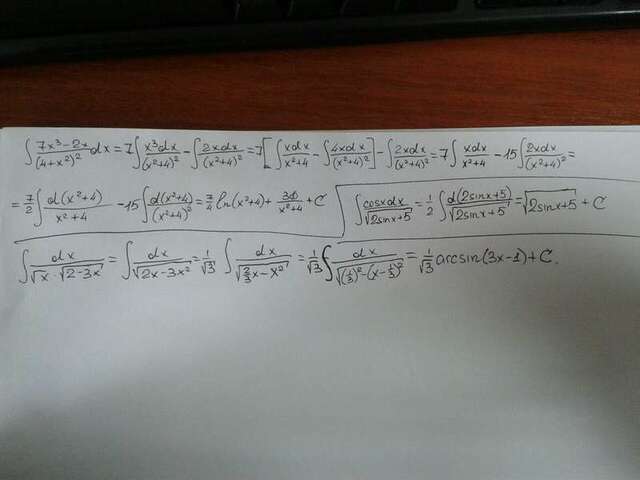 ∫ (7x³-2x)/(4+x²)² dx = 7∫ x³dx/(x²+4)² - ∫ 2xdx/(x²+4)² = 7[∫ xdx/(x²+4) - ∫ 4xdx/(x²+4)²] - ∫ 2xdx/(x²+4)² = 7∫ xdx/(x²+4) - 15∫ 2xdx/(x²+4)² =
= 7/2 ∫ d(x²+4)/(x²+4) - 15∫ d(x²+4)/(x²+4)² = 7/4 ln(x²+4) + /(x²+4) + C
∫ cosxdx/√(2sinx+5) = 1/2 ∫ d(2sinx+5)/√(2sinx+5) = √(2sinx+5) + C
∫ dx/(√x · √(2-3x)) = ∫ dx/√(2x-3x²) = 1/√3 ∫ dx/√(2/3 x - x²) = 1/√3 ∫ dx/√((1/3)²-(x-1/3)²) = 1/√3 arcsin(3x-1)+C.